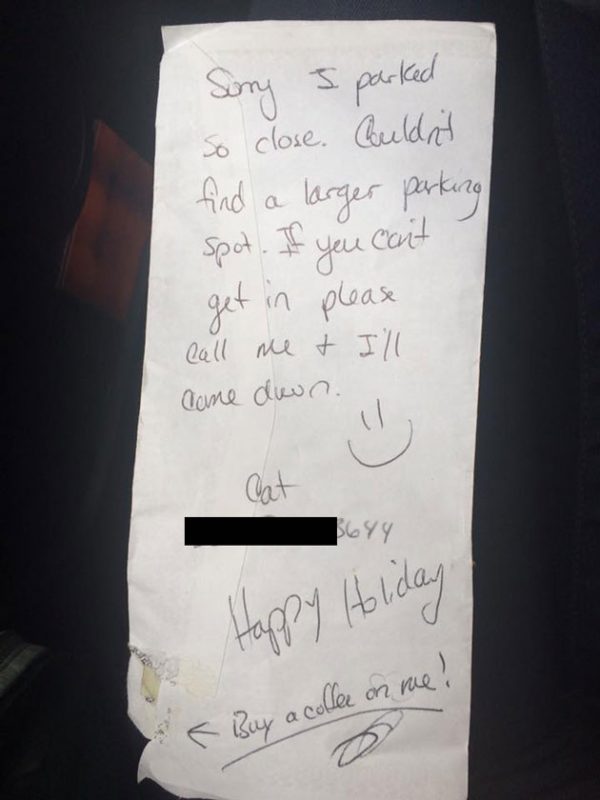 Sorry I parked
so close. Couldn't
find a larger parking
spot. If you can't
get in please
call me + I'll
come down.
Cat
3644
Happy Holiday
← Buy a coffee on me!